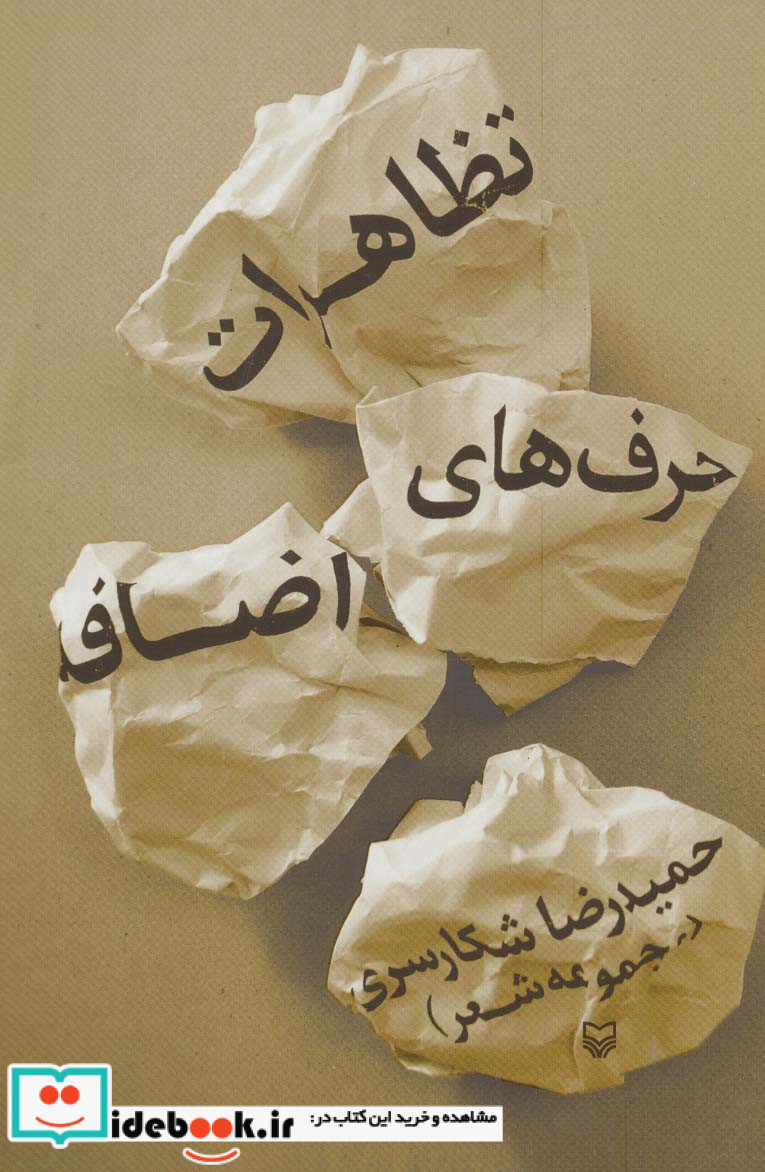 تظاهرات
حرف‌های
اضافه
حمیدرضا شکارسری
(مجموعه شعر)
مشاهده و خرید این کتاب در:
idebook.ir